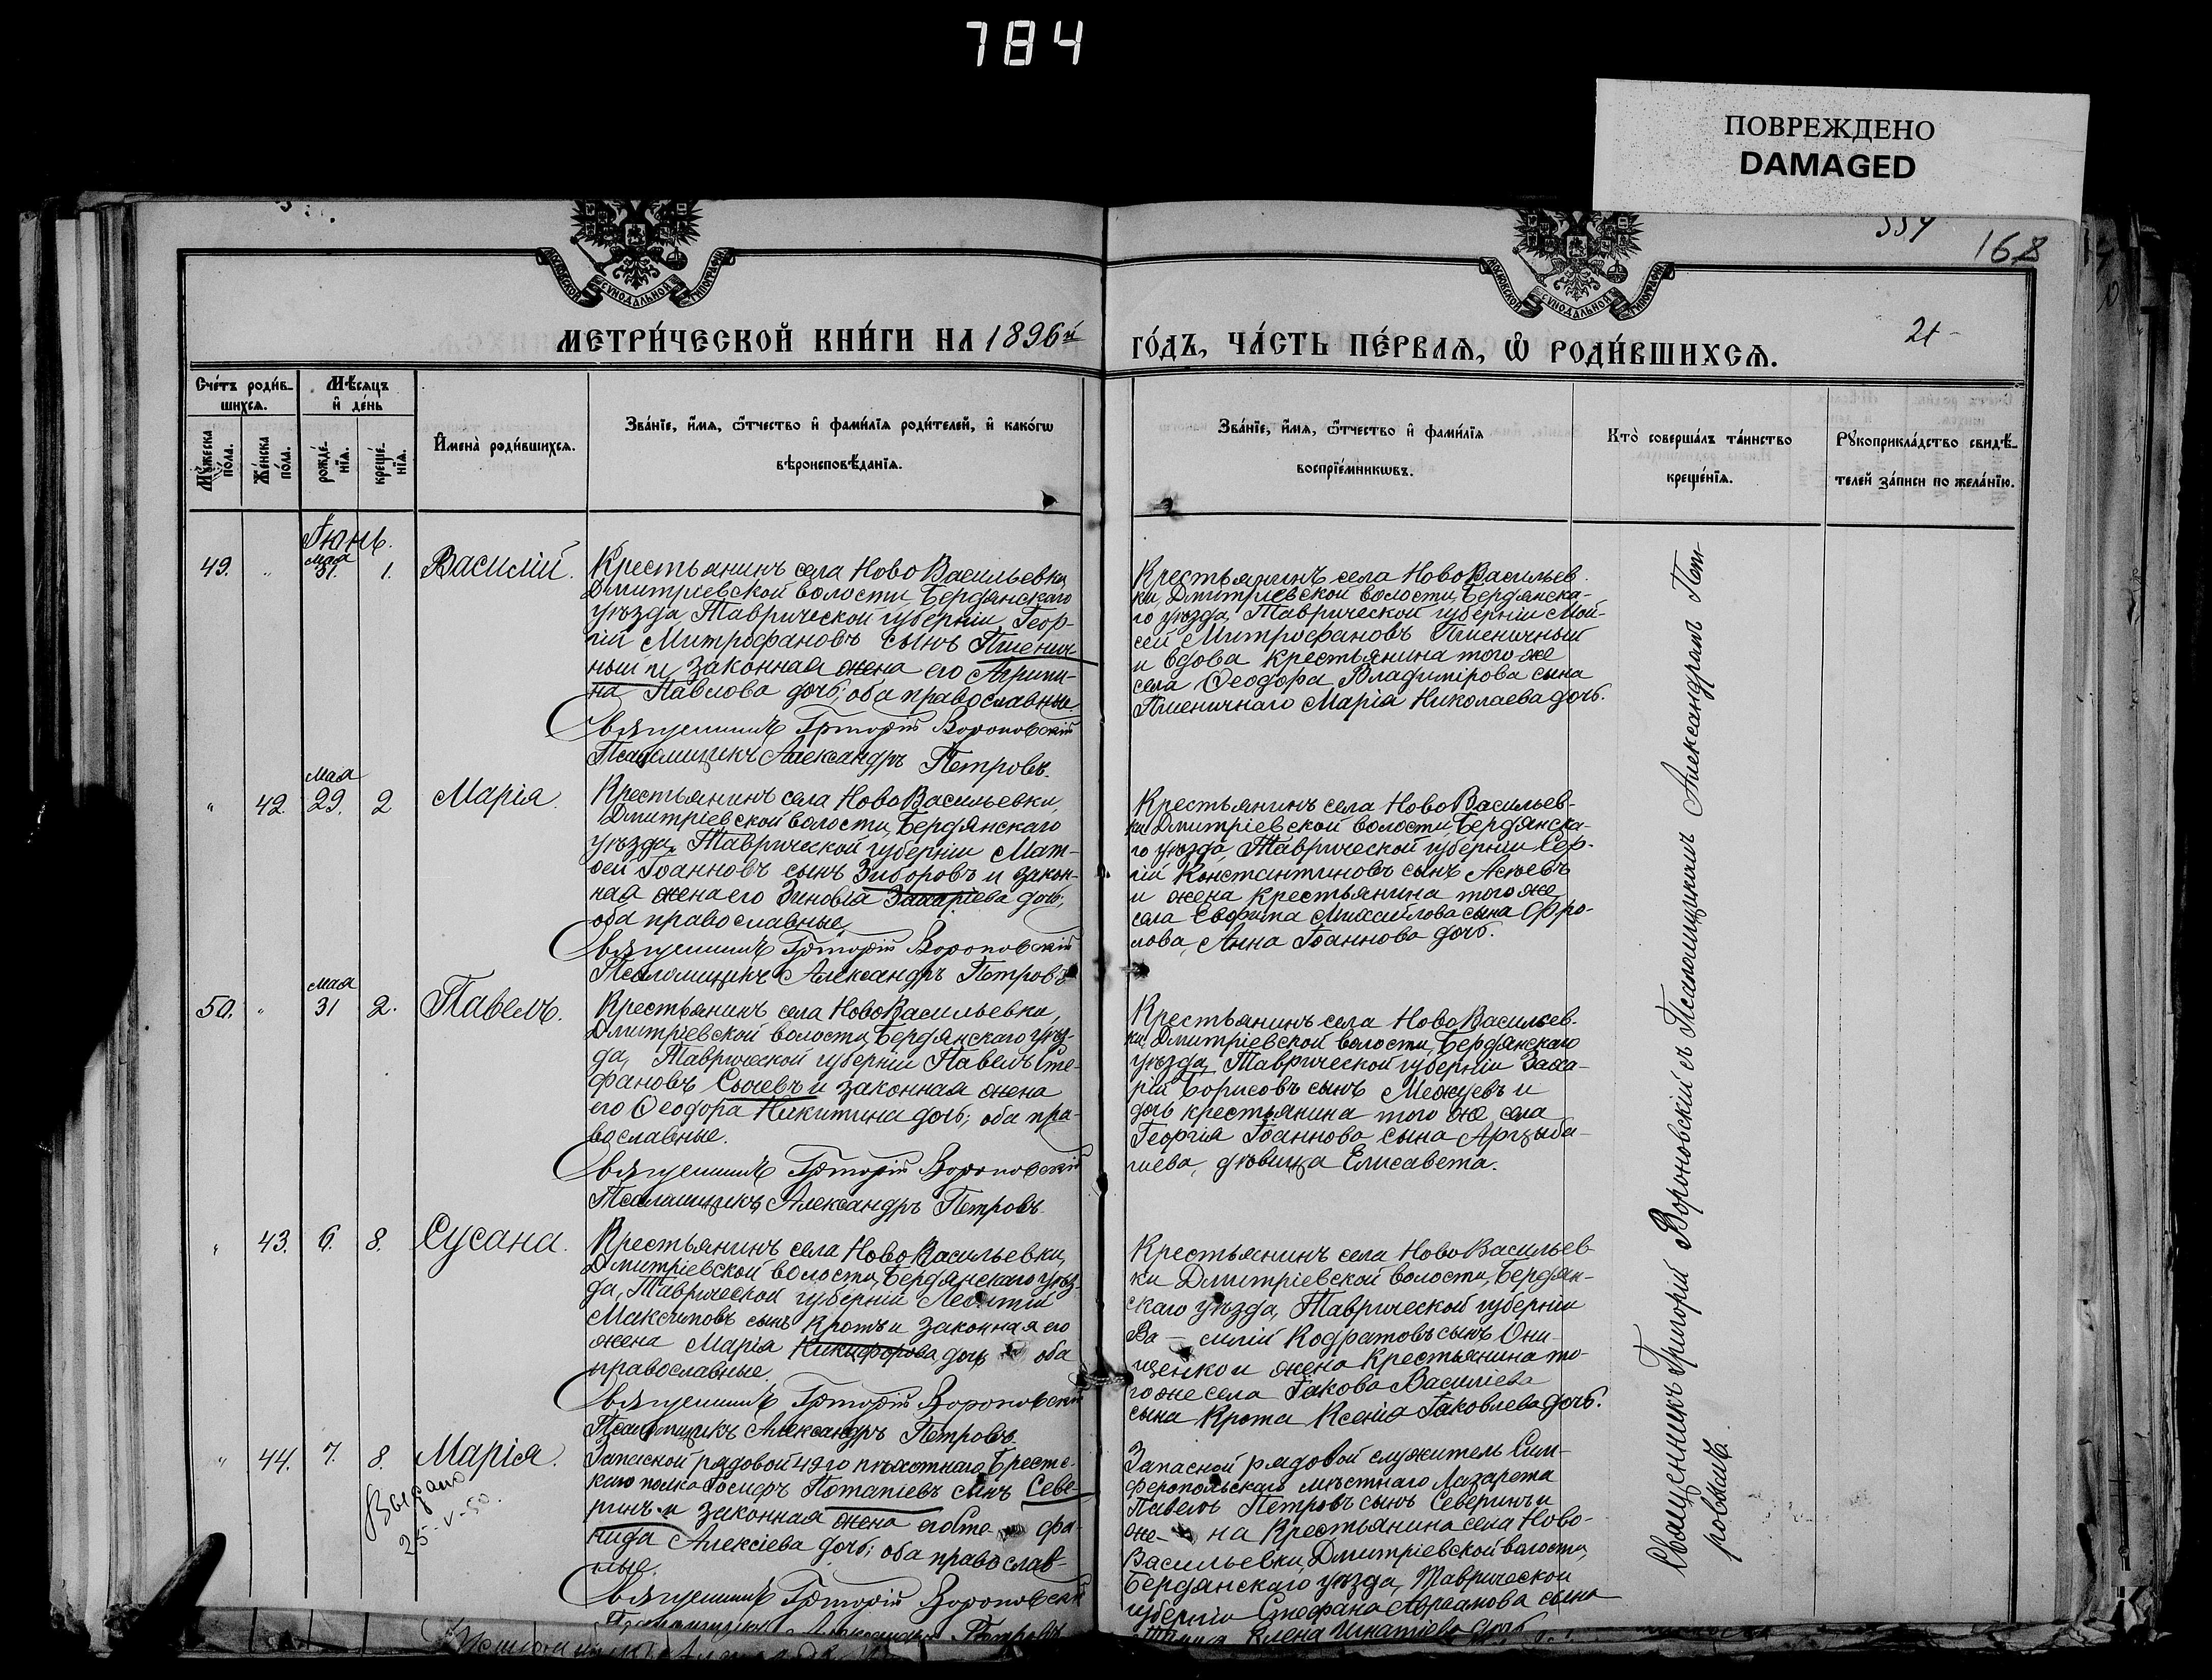 784
ПОВРЕЖДЕНО
DAMAGED
168
МОСКОВСКОЙ СѴНОДАЛЬНОЙ ТИПОГРАФІИ
МОСКОВСКОЙ СѴНОДАЛЬНОЙ ТИПОГРАФІИ
МЕТРИ́ЧЕСКОЙ КНИ́ГИ НА 1896й
ГО́ДЪ, ЧА́СТЬ ПЕ́РВАѦ, Ѽ РОДИ́ВШИХСѦ.
21
Сче́тъ роди́в-
шихсѧ.
Мꙋ́жеска по́ла.
Же́нска по́ла.
Мѣ́сѧцъ
и҆ де́нь
рожде́нїѧ.
креще́нїѧ.
И҆мена̀ роди́вшихсѧ.
Зва́нїе, и҆́мѧ, ѻ҆́тчество и҆ фами́лїѧ роди́телей, и҆ како́гѡ
вѣроисповѣ́данїѧ.
Зва́нїе, и҆́мѧ, ѻ҆́тчество и҆ фами́лїѧ
воспрїе́мникѡвъ.
Кто̀ соверша́лъ та́инство
креще́нїѧ.
Рꙋкоприкла́дство свидѣ́-
телей за́писи по жела́нїю.
Іюнь.
49. " Мая 31. 1. Василій.
Крестьянинъ села НовоВасильевки
Дмитріевской волости, Бердянскаго
уѣзда, Таврической губерніи, Геор-
гій Митрофановъ сынъ Пшенич
ный и законная жена его Агрипи-
на Павлова дочь; оба православные.
Священникъ Григорій Вороновскій
Псаломщикъ Александръ Петровъ.
Крестьянинъ села НовоВасильев-
ки, Дмитріевской волости, Бердянска-
го уѣзда, Таврической губерніи Мои-
сей Митрофановъ Пшеничный
и вдова крестьянина того же
села Ѳеодора Владимірова сына
Пшеничнаго Марія Николаева дочь.
" 42. Мая 29. 2 Марія.
Крестьянинъ села НовоВасильевки,
Дмитріевской волости, Бердянскаго
уѣзда, Таврической губерніи Мат-
ѳей Іоанновъ сынъ Зиборовъ и закон-
ная жена его Зиновія Захаріева дочь;
оба православные.
Священникъ Григорій Вороновскій
Псаломщикъ Александръ Петровъ
Крестьянинъ села НовоВасильев-
ки Дмитріевской волости, Бердянска-
го уѣзда, Таврической губерніи Сер-
гій Константиновъ сынъ
и жена крестьянина того же
села Евѳима Михаилова сына Фро-
лова, Анна Іоаннова дочь.
50. " Мая 31 2. Павелъ.
Крестьянинъ села НовоВасильевки,
Дмитріевской волости, Бердянскаго уѣз-
да, Таврической губерніи Павелъ Сте-
фановъ Сычевъ и законная жена
его Ѳеодора Никитина дочь; оба пра-
вославные.
Священникъ Григорій Вороновскій
Псаломщикъ Александръ Петровъ.
Крестьянинъ села НовоВасильев-
ки Дмитріевской волости, Бердянскаго
уѣзда, Таврической губерніи Заха-
рій Борисовъ сынъ Межуевъ и
дочь крестьянина того же села
Георгія Іоаннова сына Арцыба-
шева, дѣвица Елисавета.
" 43. 6. 8. Сусана.
Крестьянинъ села НовоВасильевки,
Дмитріевской волости, Бердянскаго уѣз-
да, Таврической губерніи Леонтій
Максимовъ сынъ Кротъ и законная его
жена Марія Никифорова дочь оба
православные.
Священникъ Григорій Вороновскій
Псаломщикъ Александръ Петровъ.
Крестьянинъ села НовоВасильев-
ки Дмитріевской волости, Бердян-
скаго уѣзда, Таврической губерніи
Ва- силій Кодратовъ сынъ Они-
щенко и жена крестьянина то-
го же села Іакова Василіева
сына Крота Ксенія Іаковлева дочь.
" 44. 7. 8. Марія.
Выдано
25-V-50.
Запасной рядовой 49го пѣхотнаго Брест-
скаго полка Іосифъ Потапіевъ сынъ Севе-
ринъ и законная жена его Сте- фа-
нида Алексіева дочь; оба православ-
ные.
Священникъ Григорій Вороновскій
Псаломщикъ Александръ Петровъ
Запасной рядовой служитель Сим-
феропольскаго мѣстнаго Лазарета
Павелъ Петровъ сынъ Северинъ и
же- на крестьянина села Ново-
Васильевки, Дмитріевской волости,
Бердянскаго уѣзда, Таврической
губерніи Стефана Авраамова сына
Елена Игнатіева дочь
Священникъ Григорій Вороновскій съ Псаломщикомъ Александромъ Пет-
ровымъ.